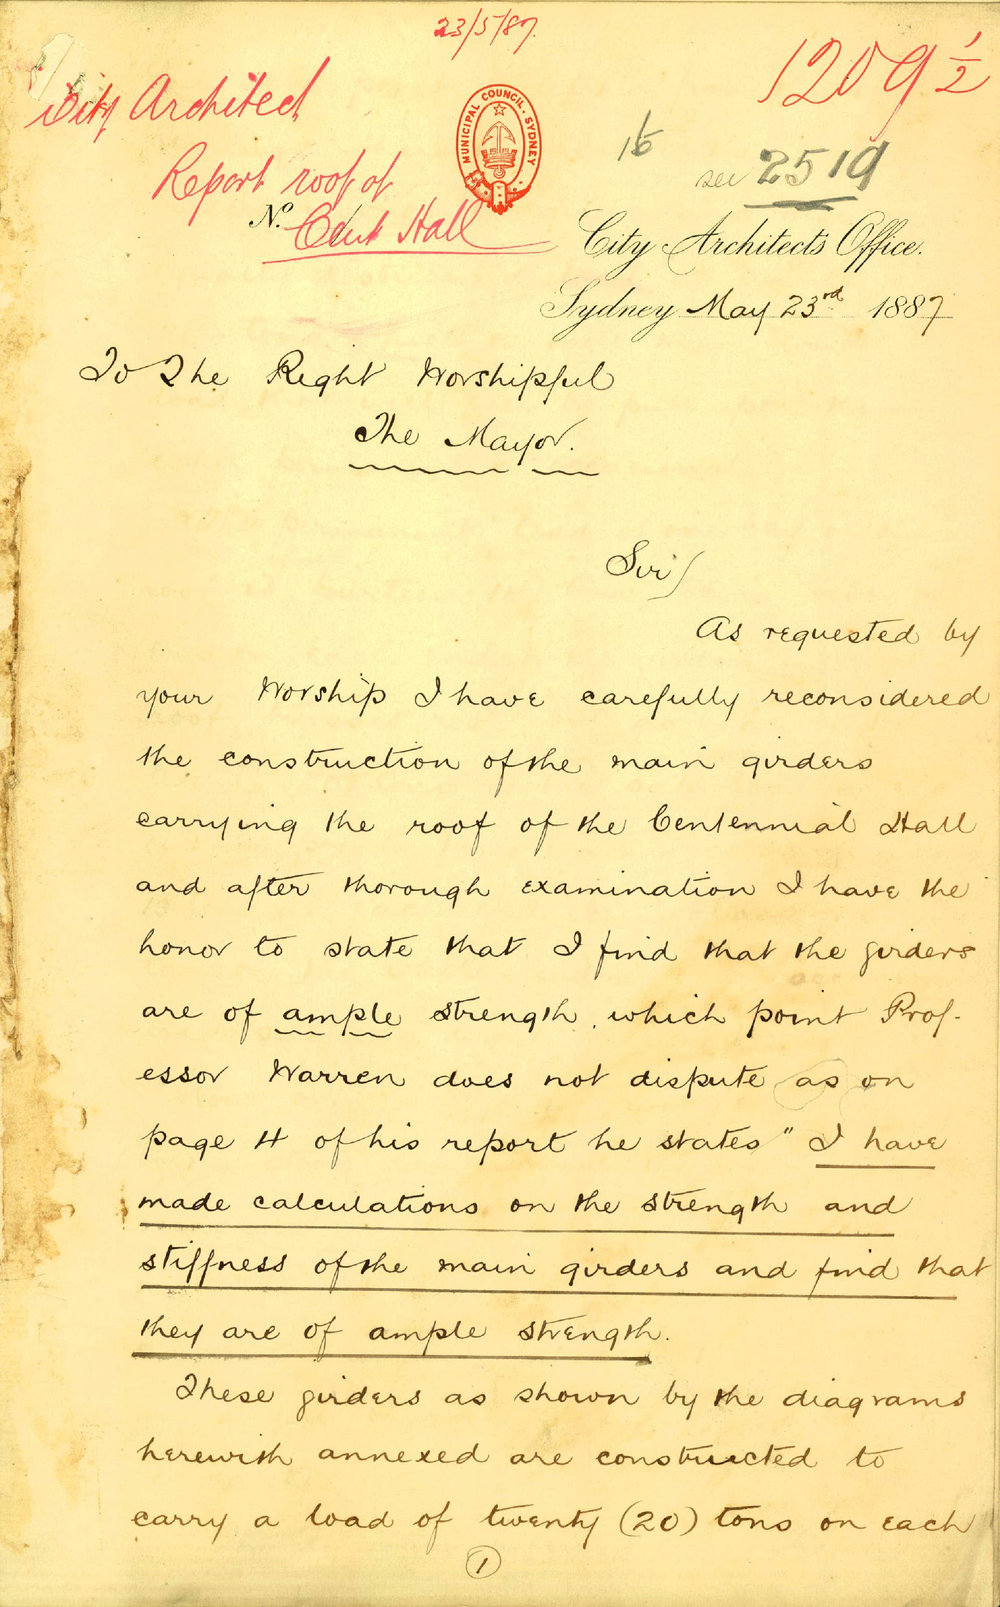 23/5/87.
1209 1/2
City Architect
MUNICIPAL COUNCIL. SYDNEY
16
see 2519
Report roof of
No.
Cent Hall
City Architects Office.
Sydney May 23rd 1887
To The Right Worshipful
The Mayor.
Sir/
As requested by
your Worship I have carefully reconsidered
the construction of the main girders
carrying the roof of the Centennial Hall
and after thorough examination I have the
honor to state that I find that the girders
are of ample strength, which point Prof-
essor Warren does not dispute as on
page 4 of his report he states "I have
made calculations on the strength and
stiffness of the main girders and find that
they are of ample strength.
These girders as shown by the diagrams
herewith annexed are constructed to
carry a load of twenty (20) tons on each
1